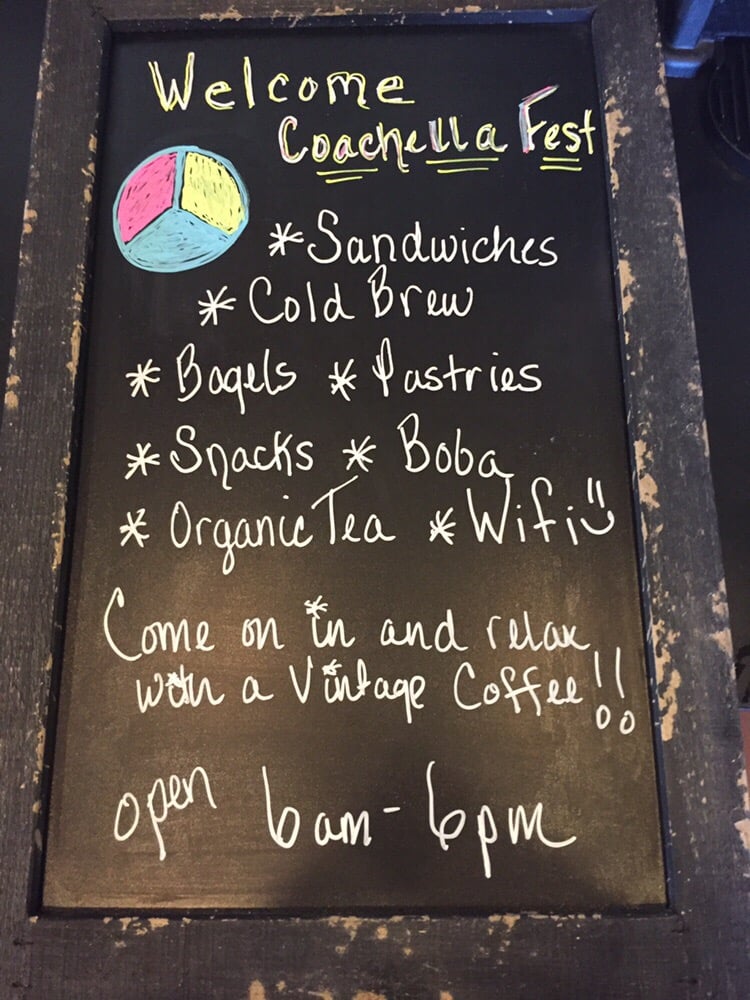 Welcome
Coachella Fest
* Sandwiches
* Cold Brew
* Bagels * Pastries
* Snacks * Boba
* Organic Tea * Wifi
Come on in and relax
with a Vintage Coffee!!
open 6am - 6pm